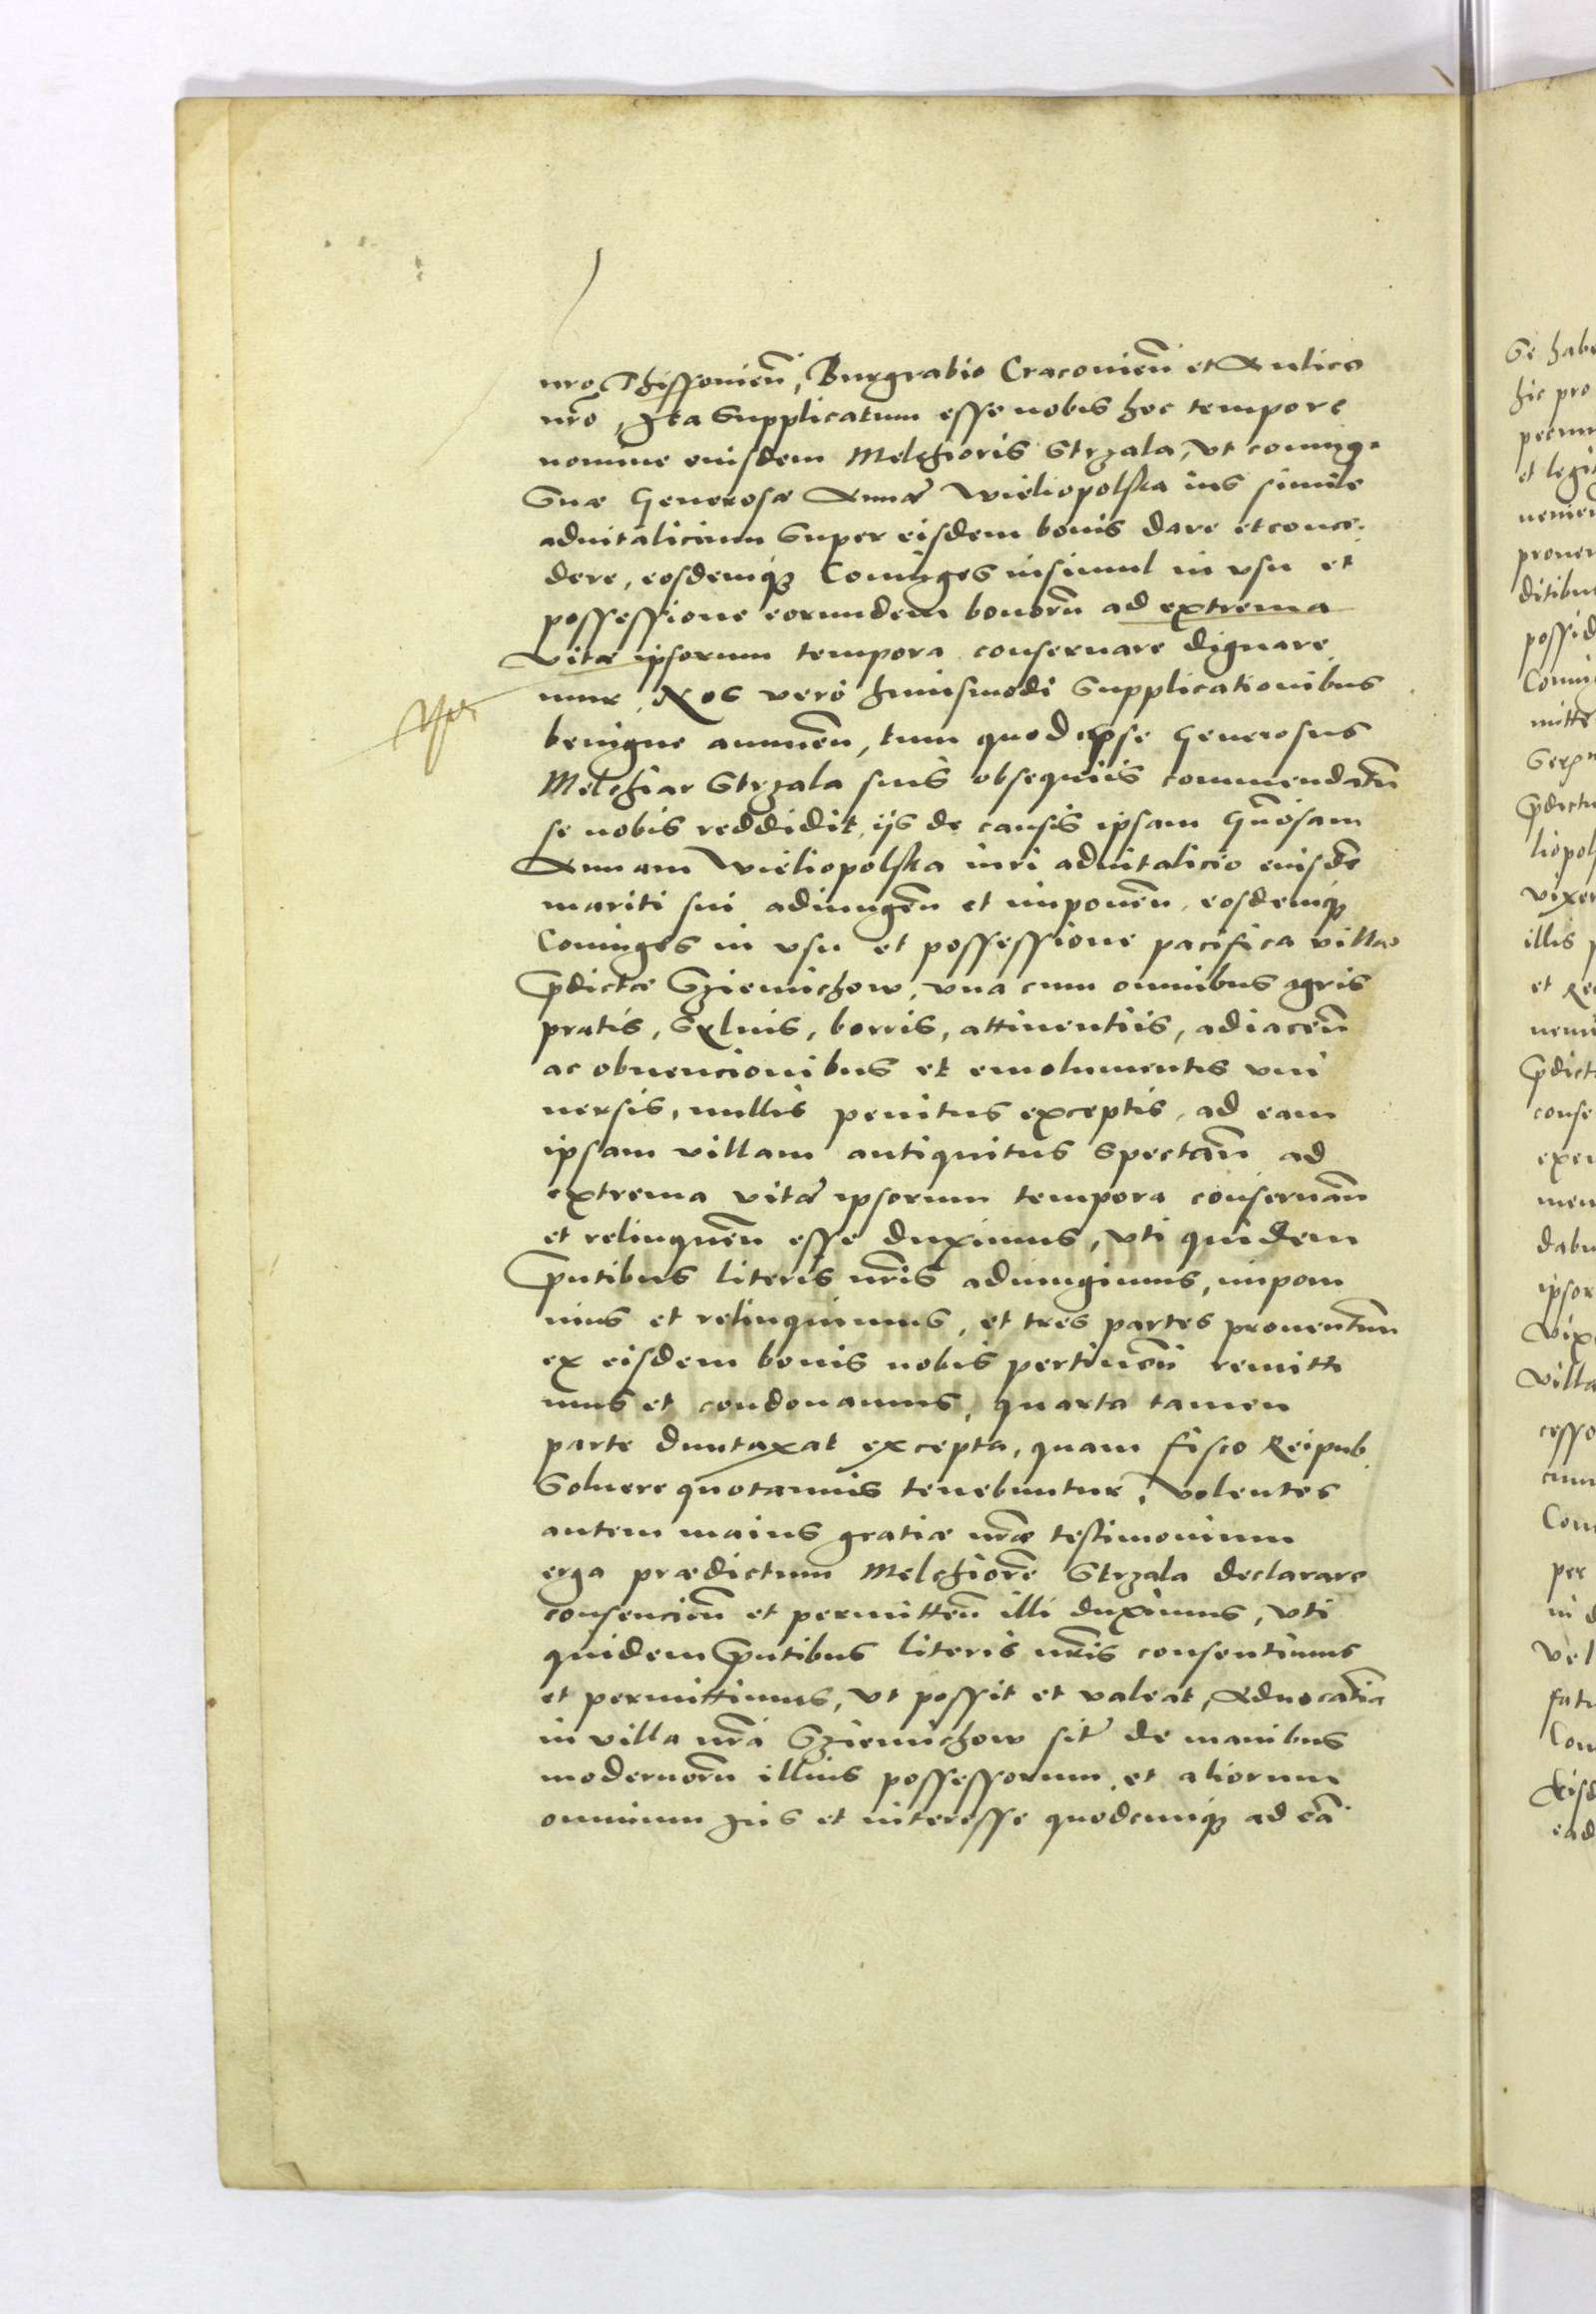 nro Thissovien, Burgrabio Cracovien et Aulico
nro, Ita supplicatum esse nobis hoc tempore
nomine eiusdem Melchioris Strzala, vt coniug.
suæ Generosæ Annæ Wieliopolska ius simile
aduitalicium super eisdem bonis dare et conce.
dere, eosdemqз Coniuges insimul in vsu et
possessione eorundem bonorū ad extrema
vitæ ipsorum tempora conseruare dignare
mur. Nos vero huiusmodi supplicationibus
benigne annuen, tum quod ipse Generosus
Melchiar Strzala suis obsequiis commendatū
se nobis reddidit, ijs de causis ipsam Gnosam
Annam Wieliopolska iuri aduitalicio eiusdē
mariti sui adiungen et imponen, eosdemqз
Coniuges in vsu et possessione pacifica villæ
p̄dictæ Gziemichow, vna cum omnibus agris
pratis, syluis, borris, attinentiis, adiacen
ac obuencionibus et emolumentis vni
uersis, nullis penitus exceptis, ad eam
ipsam villam antiquitus spectan ad
extrema vitæ ipsorum tempora conseruan
et relinquen esse duximus, vti quidem
p̄ntibus literis nris adiungimus, imponi
mus et relinquimus, et tres partes prouentum
ex eisdem bonis nobis pertinen remitti
mus et condonamus, quarta tamen
parte duntaxat excepta, quam fisco Reipub
soluere quotannis tenebuntur, Volentes
autem maius gratiæ nræ testimonium
erga prædictum Melchiorē Strzala declarare
consencien et permitten illi duximus, vti
quidem p̄ntibus literis nris consentimus
et permittimus, vt possit et valeat, Aduocatiā
in villa nra Gziemichow sitā de manibus
modernorū illius possessorum, et aliorum
omnium Ius et interesse quodcunqз ad eā